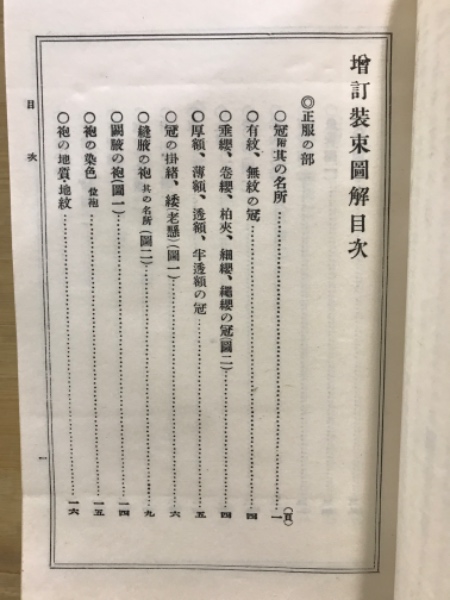 增訂裝束圖解目次
◎正服の部
○冠附其の名所……一(頁)
○有紋、無紋の冠……四
○垂纓、卷纓、柏夾、細纓、繩纓の冠(圖二)……四
○厚額、薄額、透額、半透額の冠……五
○冠の掛緒、緌(老懸)(圖一)……六
○縫腋の袍 其の名所(圖二)……九
○闕腋の袍(圖一)……一四
○袍の染色 位袍……一五
○袍の地質・地紋……一六
目次
一